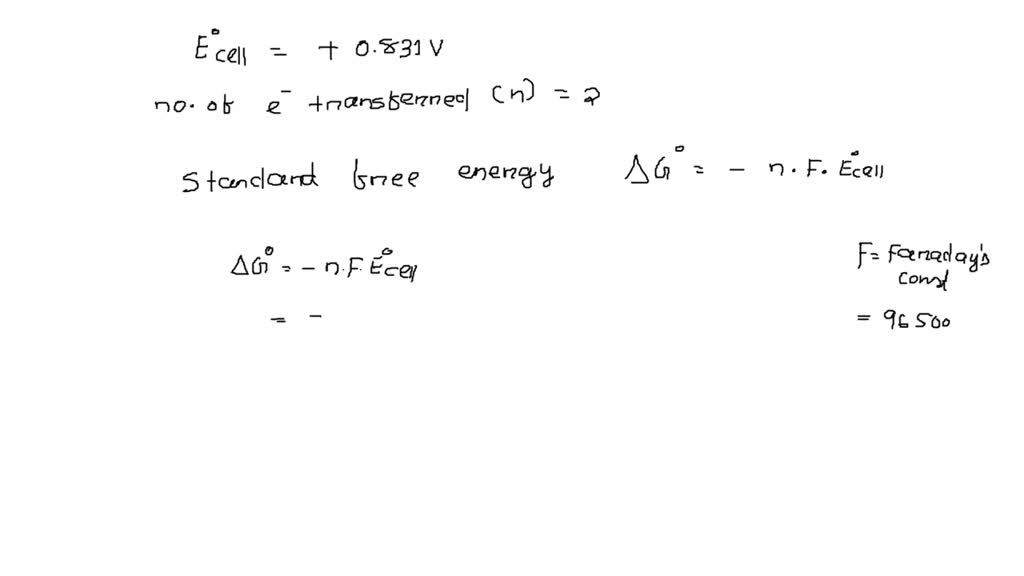 E°cell = + 0.831 V
no. of e⁻ transferred (n) = 2
Standard free energy ΔG° = - n. F. E°cell
ΔG° = - n.F. E°cell
= -
F = Faraday's
const
= 96500